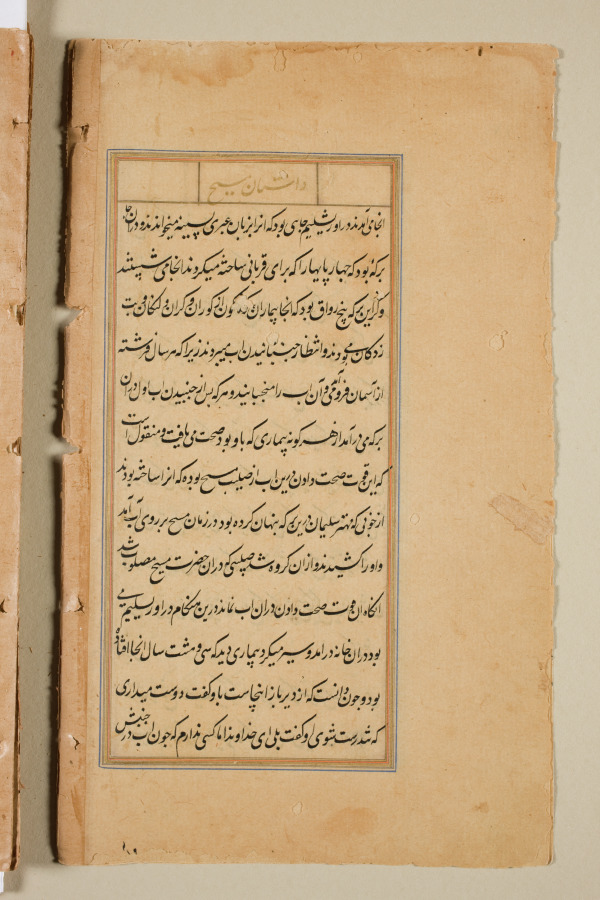 داستان مسیح
انجا می آمدند در اورشلیم جاهی بود که انرا بزبان عبری سپینه میخواندند و دران جا
برکه بود که چهار پایها را که برای قربانی ساخته میکردند انجا می شستند
و کرد این برکه پنج رواق بود که انجا بیماران کونا کون از کوران و کران و لنکان و
زدکان می بودند و انتظار جنبانیدن اب میبردند زیرا که هر سال فرشته
از آسمان فرو آمدی و آن اب را میجنبانید و هر که پس از جنبیدن اب اول دران
برکه می درآمد از هر کونه بیماری که باو بود صحت می یافت و منقول است
که این قوت صحت دادن درین اب از صلیب مسیح بوده که انرا ساخته بودند
از چوبی که مهتر سلیمان درین برکه پنهان کرده بود در زمان مسیح بر روی آب آمد
و اورا کشیدند و ازان کروه شد صلیبی که دران حضرت مسیح مصلوب شد
انکاه ان قوت صحت دادن دران اب نماند درین هنکام در اورشلیم می
بود دران خانه درامد و سیر میکرد بیماری دید که سی و هشت سال انجا افتاده
بود و چون دانست که از دیر باز اینجاست باو کفت دوست میداری
که تندرست شوی او کفت بلی ای خداوند اما کسی ندارم که چون اب در جنبش